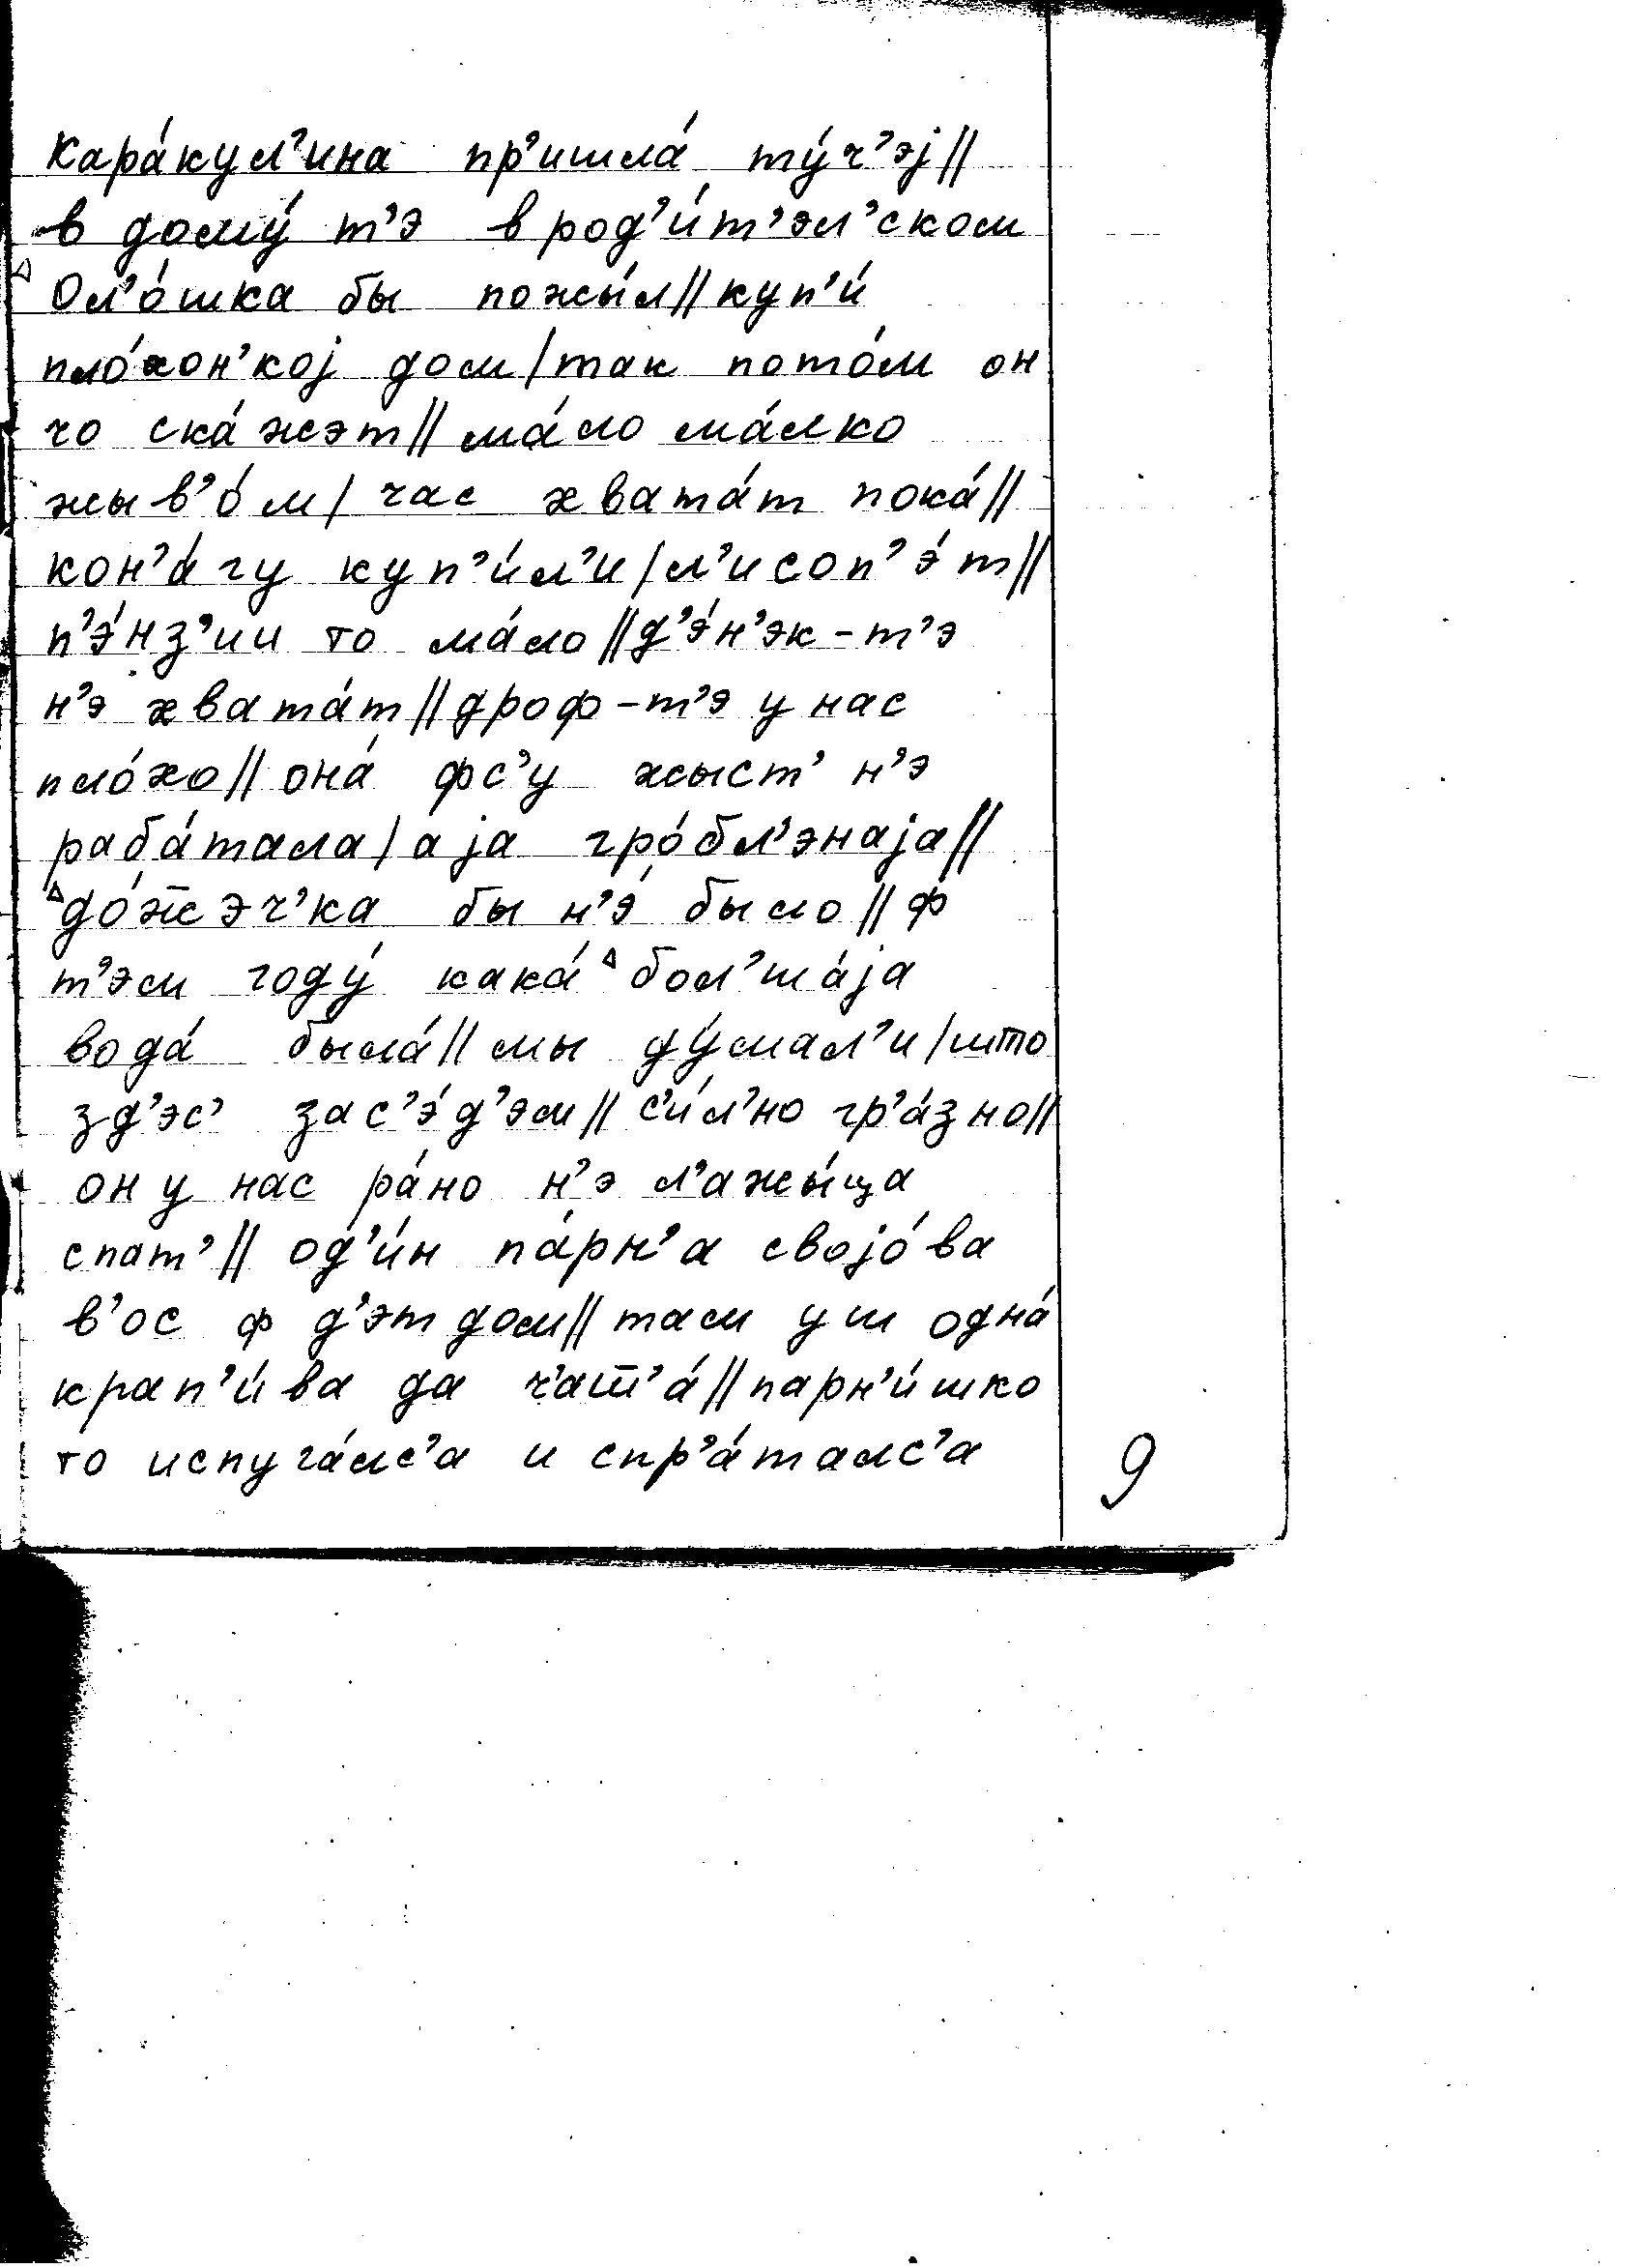 Кара́кул’ина пр’ишла́ ту́ч’эј//
в дому́ т’э в род’и́т’эл’ском
△Ол’о́шка бы пожы́л//куп’и́
пло́хон’кој дом/так пото́м он
чо ска́жэт//ма́ло ма́лко
жыв’о́м/час хвата́т пока́//
кон’а́гу куп’и́л’и/л’исоп’э́т//
п’э́нз’ии то ма́ло//д’э́н’эк-т’э
н’э хвата́т//дроф-т’э у нас
пло́хо//она́ фс’у жыст’ н’э
раба́тала/а ја гро́бл’энаја//
△до́ж̅эч’ка бы н’э́ было//ф
т’эм году́ кака́ △бол’ша́ја
вода́ была́//мы ду́мал’и/што
зд’эс’ зас’э́д’эм//с’и́л’но гр’а́зно//
он у нас ра́но н’э л’ажы́ца
спат’//од’и́н па́рн’а својо́ва
в’ос ф д’этдом//там уш одна́
крап’и́ва да ч’аш̅’а́//парн’и́шко
то испуга́лс’а и спр’а́талс’а
9